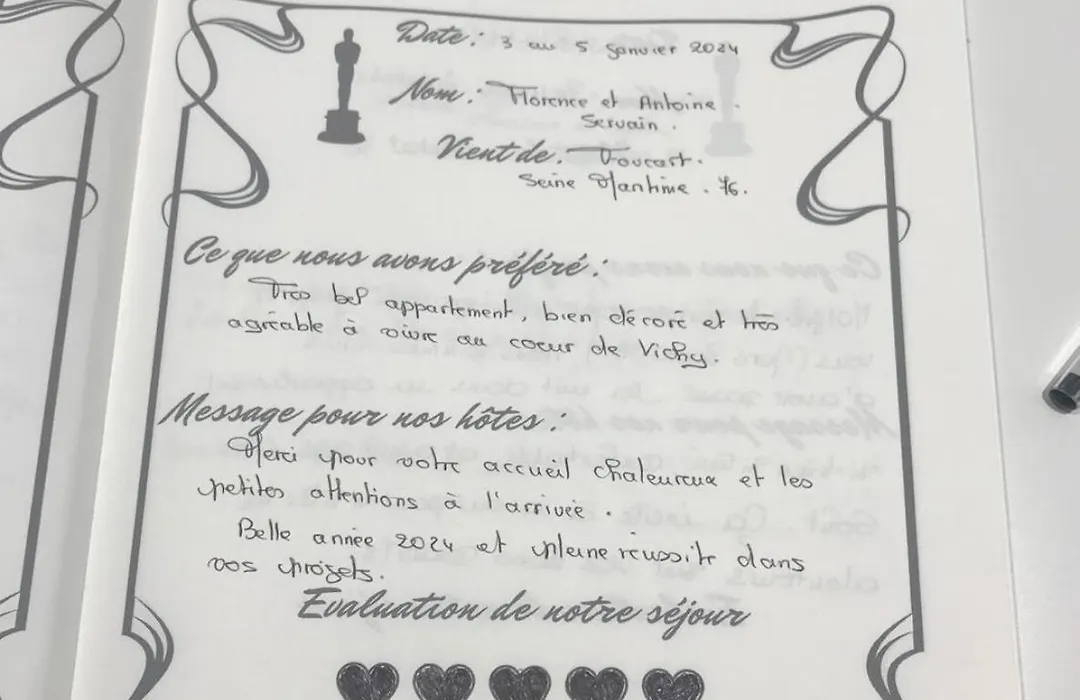 Date : 3 au 5 Janvier 2024
Nom : Florence et Antoine
Servain.
Vient de : Foucart.
Seine Maritime. 76.
Ce que nous avons préféré :
Très bel appartement, bien décoré et très
agréable à vivre au coeur de Vichy.
Message pour nos hôtes :
Merci pour votre accueil chaleureux et les
petites attentions à l'arrivée.
Belle année 2024 et pleine réussite dans
vos projets.
Evaluation de notre séjour